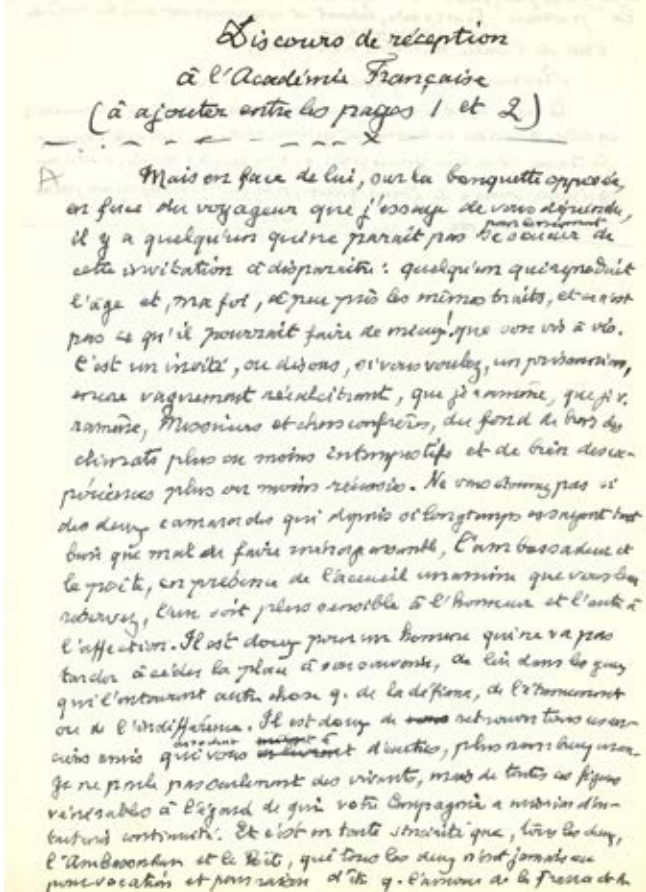 Discours de réception
à l'Académie Française
(à ajouter entre les pages 1 et 2)
A Mais en face de lui, sur la banquette opposée,
en face du voyageur que j'essaye de vous dépeindre,
il y a quelqu'un qui ne paraît pas se soucier de
cette invitation à disparaître : quelqu'un qui reproduit
l'âge et, ma foi, à peu près les mêmes traits, et ce n'est
pas ce qu'il pourrait faire de mieux ! que son vis à vis.
C'est un invité, ou disons, si vous voulez, un prisonnier,
encore vaguement récalcitrant, que je ramène, que je v.
ramène, Messieurs et chers confrères, du fond de bien des
climats plus ou moins intempestifs et de bien des ex-
périences plus ou moins réussies. Ne vous étonnez pas si
des deux camarades qui depuis si longtemps essayent tant
bien que mal de faire ménage ensemble, l'ambassadeur et
le poète, en présence de l'accueil unanime que vous leur
réservez, l'un soit plus sensible à l'honneur et l'autre à
l'affection. Il est doux pour un homme qui ne va pas
tarder à céder la place à son souvenir, de lire dans les yeux
qui l'entourent autre chose q. de la défiance, de l'étonnement
ou de l'indifférence. Il est doux de retrouver tous ces an-
ciens amis que vous d'autres, plus nombreux encore.
Je ne parle pas seulement des vivants, mais de toutes ces figures
vénérables à l'égard de qui votre Compagnie a mission d'in-
continuité. Et c'est en toute sincérité que, tous les deux,
l'Ambassadeur et le Poète, qui tous les deux n'ont jamais eu
pour vocation et pour raison d'être q. l'amour de la